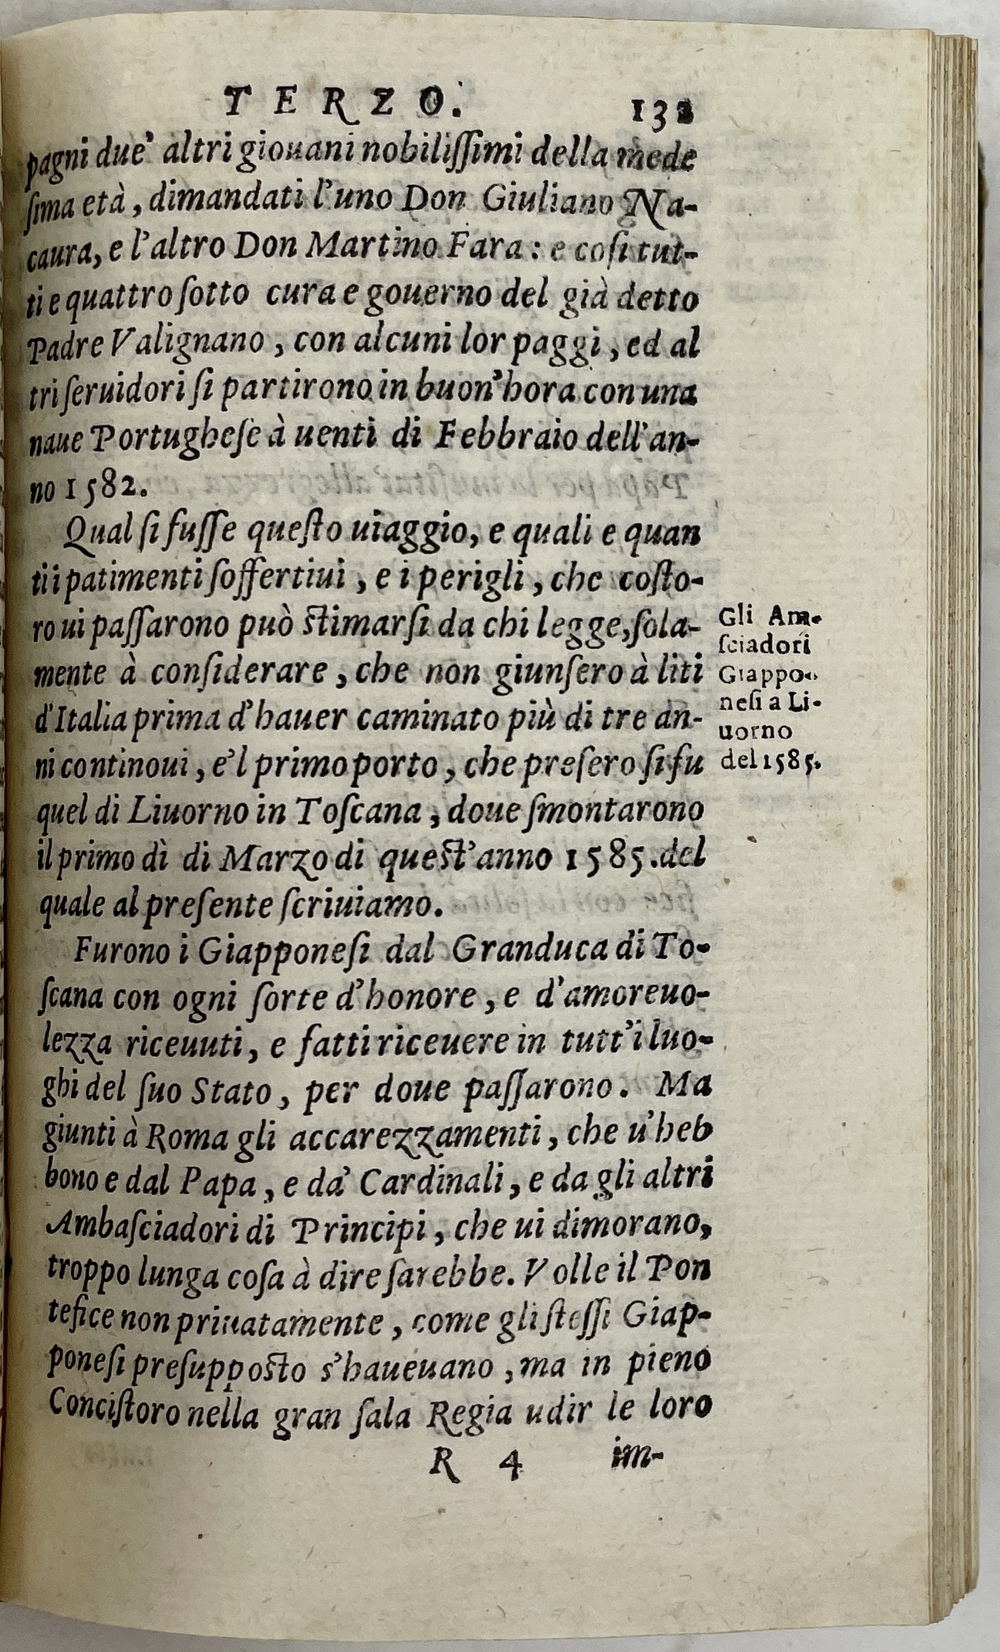 TERZO. 132
pagni due' altri giouani nobilißimi della mede
ſima età, dimandati l'uno Don Giuliano Na-
caura, e l'altro Don Martino Fara: e coſi tut-
ti e quattro ſotto cura e gouerno del già detto
Padre Valignano, con alcuni lor paggi, ed al
tri ſeruidori ſi partirono in buon'hora con una
naue Portugheſe à uenti di Febbraio dell'an-
no 1582.
Qual ſi fuſſe queſto uiaggio, e quali e quan
ti i patimenti ſoffertiui, e i perigli, che coſto-
ro ui paſſarono può ſtimarſi da chi legge, ſola-
mente à conſiderare, che non giunſero à liti
d'Italia prima d'hauer caminato più di tre an-
ni continoui, e'l primo porto, che preſero ſi fu
quel di Liuorno in Toſcana, doue ſmontarono
il primo dì di Marzo di queſt'anno 1585. del
quale al preſente ſcriuiamo.
Gli Am-
ſciadori
Giappo-
neſi a Li-
uorno
del 1585.
Furono i Giapponeſi dal Granduca di To-
ſcana con ogni ſorte d'honore, e d'amoreuo-
lezza riceuuti, e fatti riceuere in tutt'i luo-
ghi del ſuo Stato, per doue paſſarono. Ma
giunti à Roma gli accarezzamenti, che u'heb
bono e dal Papa, e da' Cardinali, e da gli altri
Ambaſciadori di Principi, che ui dimorano,
troppo lunga coſa à dire ſarebbe. Volle il Pon
tefice non priuatamente, come gli ſteſſi Giap-
poneſi preſuppoſto s'haueuano, ma in pieno
Conciſtoro nella gran ſala Regia udir le loro
R 4 im-